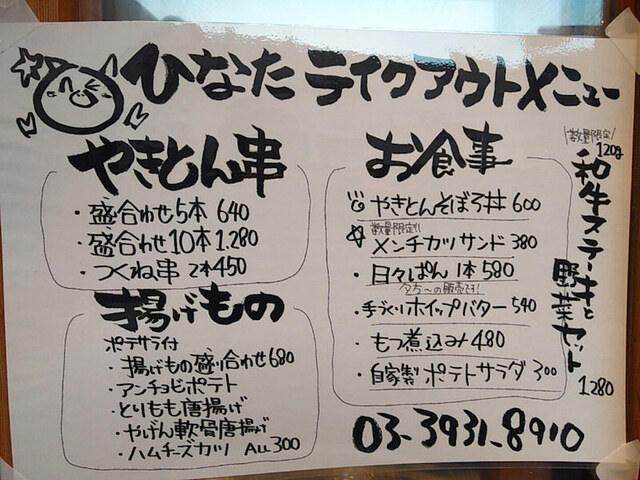 ひなた テイクアウトメニュー
やきとん串
・盛合わせ5本 640
・盛合わせ10本 1.280
・つくね串 2本450
揚げもの
ポテサラ付
・揚げもの盛り合わせ680
・アンチョビポテト
・とりもも唐揚げ
・やげん軟骨唐揚げ
・ハムチーズカツ ALL 300
お食事
やきとんそぼろ丼 600
数量限定!!
メンチカツサンド 380
・日々ぱん 1本 580
夕方〜の販売です!
・手づくりホイップバター 540
・もつ煮込み 480
・自家製 ポテトサラダ 300
数量限定!
120g
和牛ステーキと
野菜セット
1280
03-3931-8910